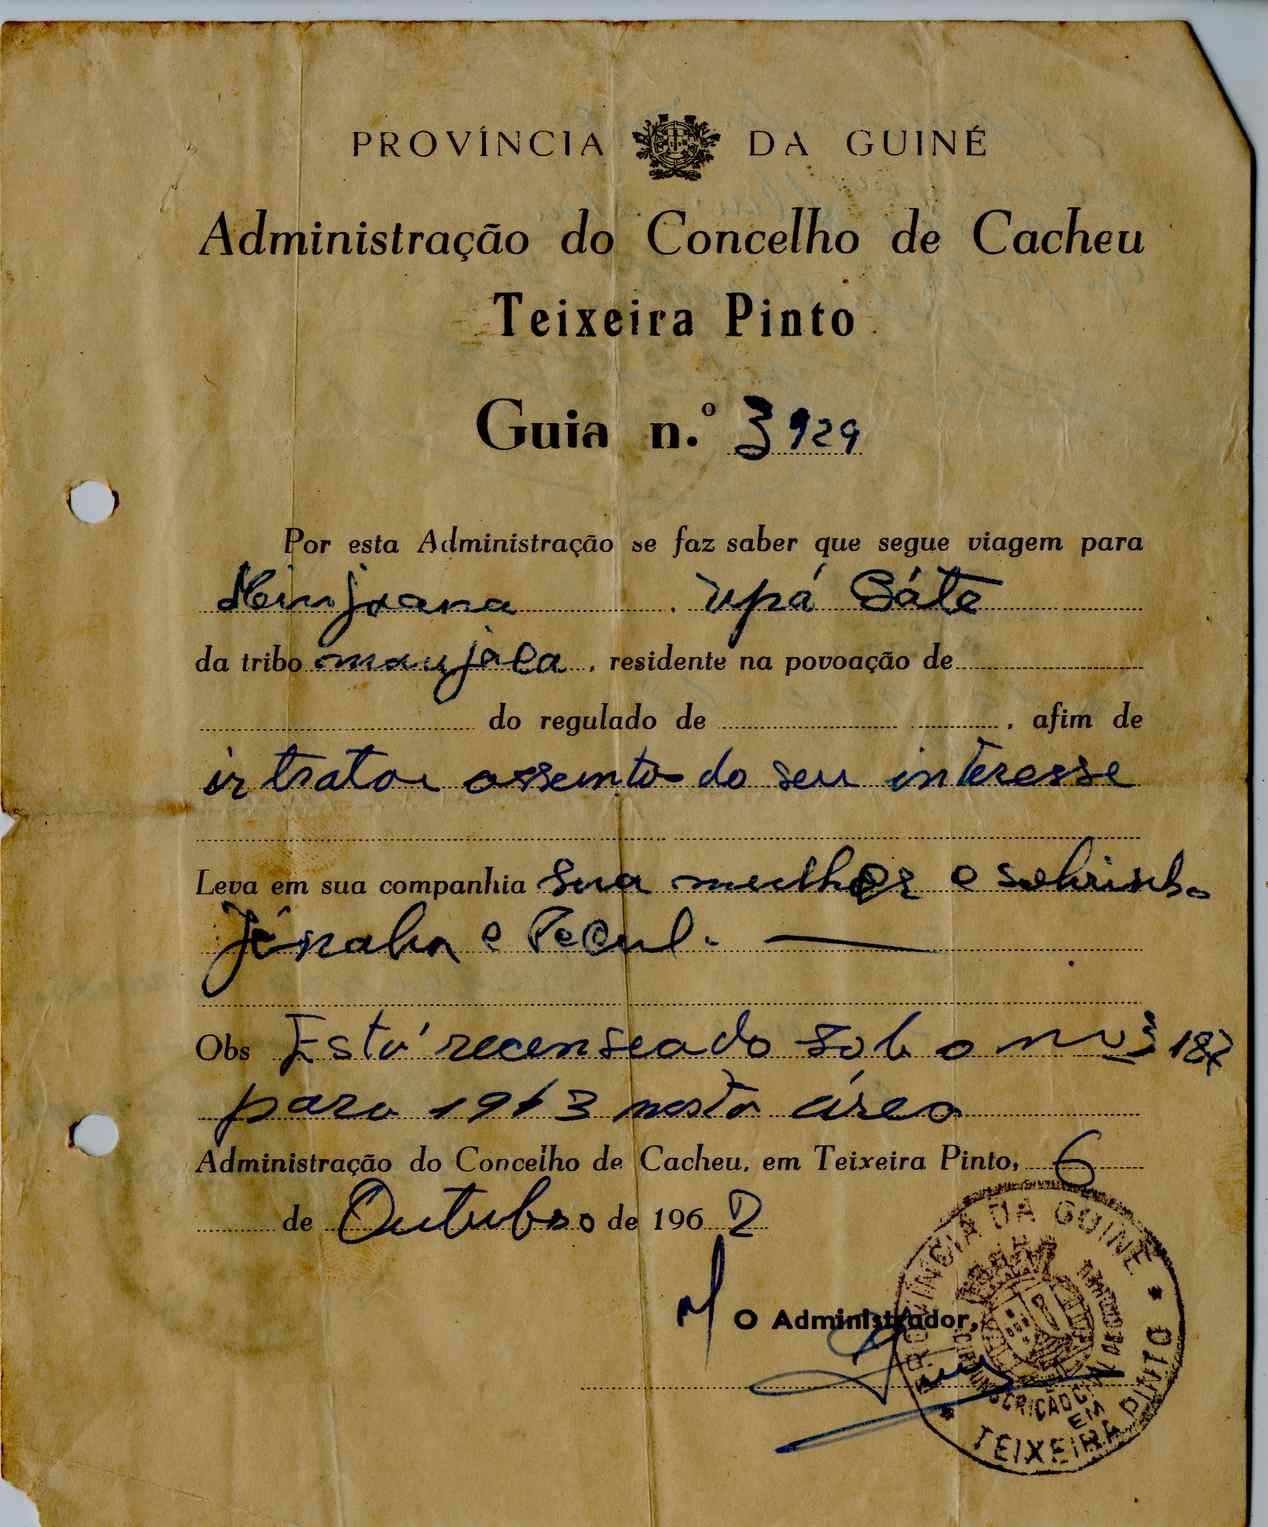 PROVÍNCIA DA GUINÉ
Administração do Concelho de Cacheu
Teixeira Pinto
Guia n.º 3929
Por esta Administração se faz saber que segue viagem para
Upá Sáte
da tribo manjaca, residente na povoação de
do regulado de , afim de
ir tratar assunto do seu interesse
Leva em sua companhia sua mulher e sobrinho
e
Obs Está recenseado sob o nº 3187
para 1963 nesta área
Administração do Concelho de Cacheu, em Teixeira Pinto, 6
de Outubro de 1962
O Administrador,
PROVÍNCIA DA GUINÉ
EM
TEIXEIRA PINTO